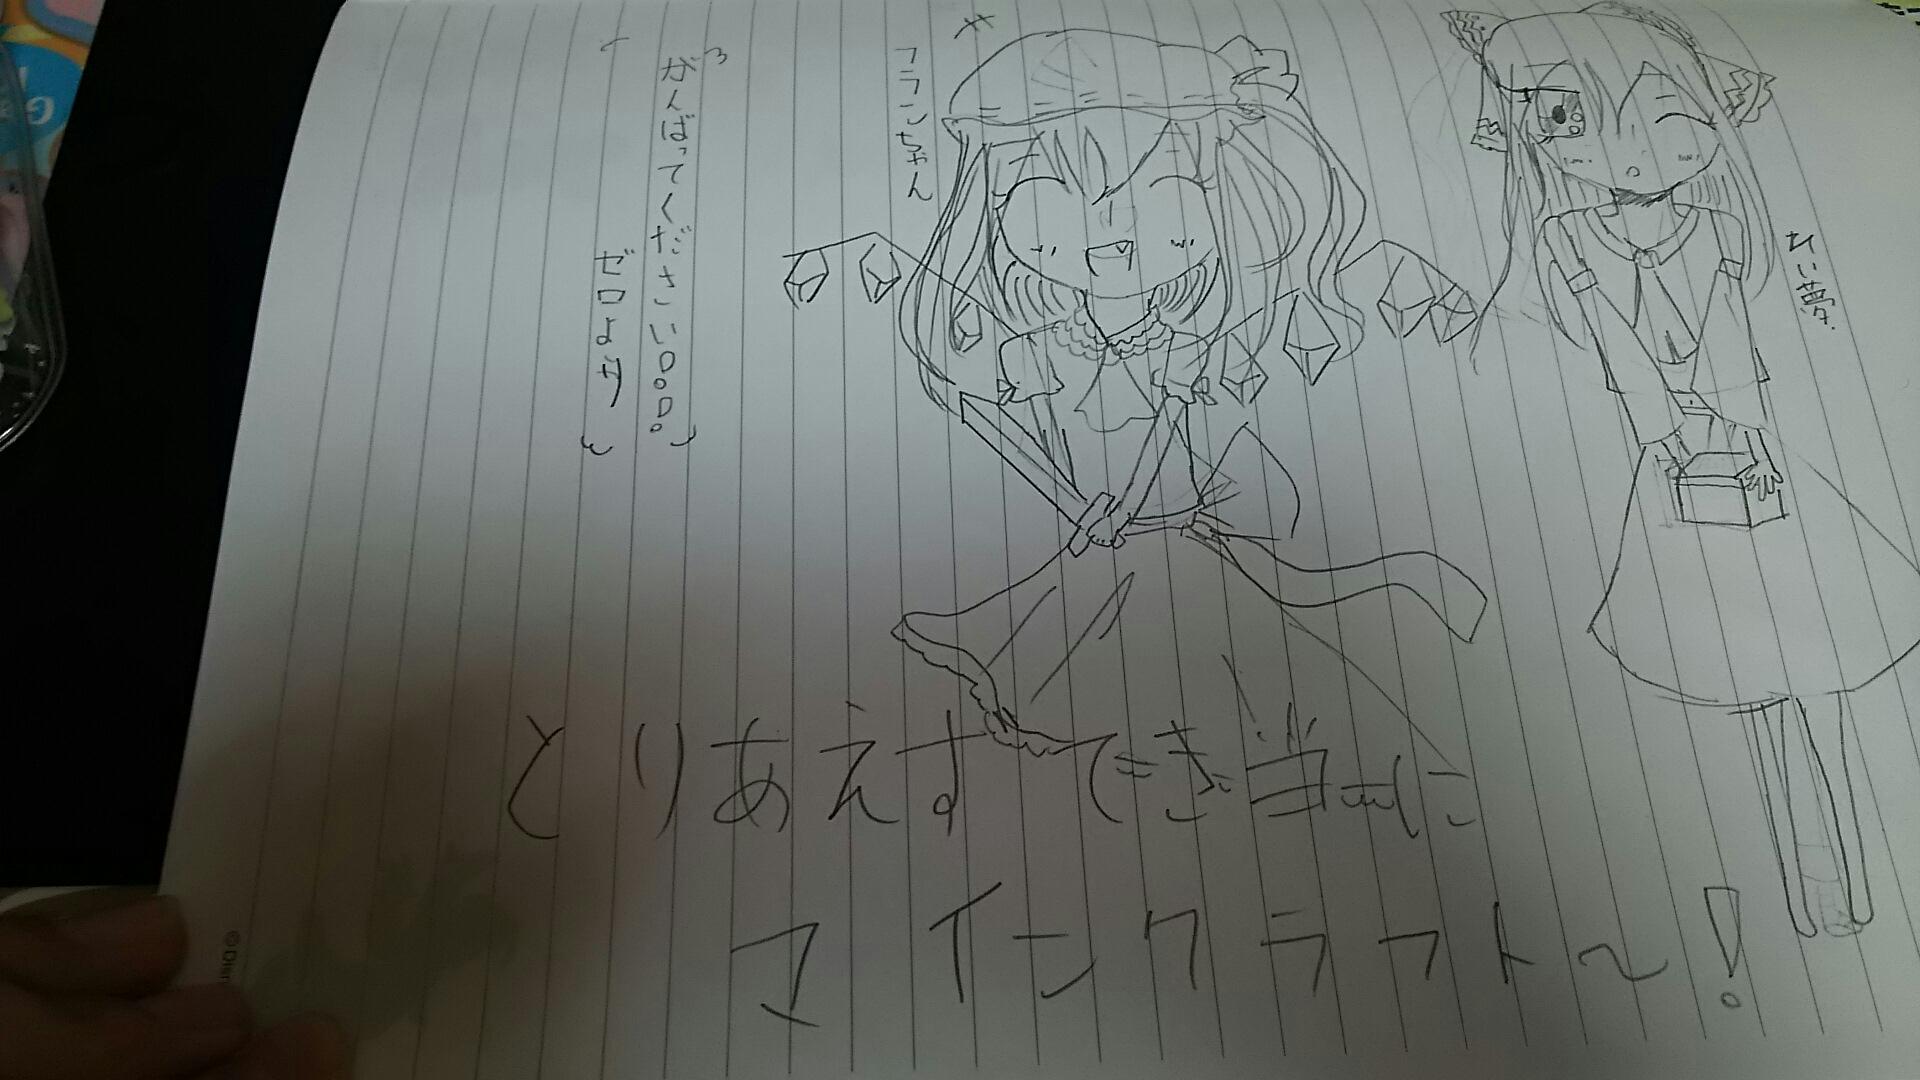 れい夢
フランちゃん
がんばってください
ゼロよ
とりあえすてき当に
マインクラフト～!
©Disn
G